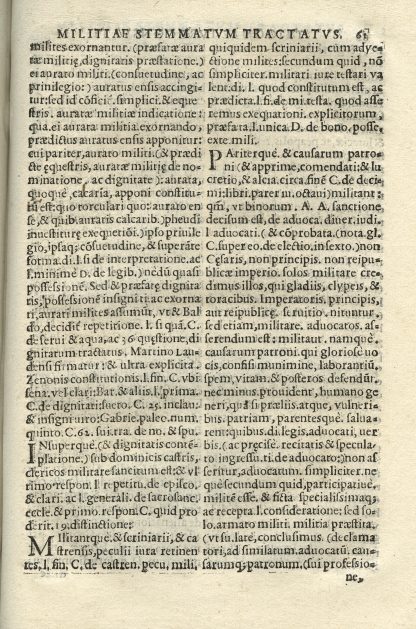 MILITIAE STEMMATVM TRACTATVS. 6
milites exornantur. (præfatæ aura
tæ militię, dignitatis præstatione.)
ei aurato militi. (consuetudine, ac
priuilegio:) auratus ensis accingi-
tur: sed id cōficit. simplici. & eque
stris. auratæ militiæ indicatione:
qua. ei aurata militia exornando,
prædictus auratus ensis apponitur:
cui pariter, aurato militi. (& prædi
cte ęquestris, auratæ militię de no-
minatione, ac dignitate): aurata,
quoquè, calcaria, apponi constitu-
tū est: quo torculari quo: aurato en
se, & quib. auratis calcarib.) pheudi
inuestituræ exequetiōi.) ipso priuile
gio, ipsaq; cōsuetudine, & superāte
forma. di. l. si de interpretatione. ad
l. minimè D. de legib.) nedū quasi
possessionē. Sed & præfatę dignita
ris, possessione insigniti: ac exorna
ri, aurati milites assumūt, vt & Bal
do, decidit repetitione. l. si quā. C.
de serui & aqua, ac 36 questione, di
gnitatum tractatus. Martino Lau-
densi firmatur: & ultra explicita.
Zenonis constitutionis. l. fin. C. vbi
sena. vel clari: Bar. & aliis. l. prima.
C. de dignitati: suero. C. 25. inclau:
& insigni uiro: Gabrie. paleo. num.
quinto. C. 62. sui. tra. de no. & spu.
INsuperquè. (& dignitatis contē-
platione.) sub dominicis castris,
clericos militare sancitum est: & vl
timo respon. l repetitu. de episco.
& clari. ac l. generali. de sacrosanc.
eccle. & primo. respon. C. quid pro
derit. 19. distinctione:
MIlitantquè. & scriniarii, & ca
strensis, peculii iura retinen
tes. l. fin. C. de castren. pecu. mili.
quiquidem scriniarii, cum adye-
ctione milites: secundum quid, nō
simpliciter. militari iure testari va
lent. di. l. quod constitutum est, ac
prædicta. l. fi. de mi. testa. quod asse
remus exequationi. explicitorum,
præfata. l. unica. D. de bono. posse.
exte mili.
PAriterquè. & causarum patro-
ni (& apprime, comendati: & lu
cretio, & alicia. circa. finē C. de deci-
mi. libri. parer iu. octani) militant:
qm̄, vt binorum. A. A. sanctione,
decisum est, de aduoca. diuer. iudi.
l aduocati. (& cōprobata. (nota. gl.
C. super eo. de electio. in sexto.) non
Cęsaris, non principis. non reipu-
blicæ imperio. solos militare cre-
dimus illos, qui gladiis, clypeis, &
toracibus. Imperatoris, principis,
aut reipublicę. seruitio. nituntur.
sed etiam, militare. aduocatos. as-
serendum est: militaut. namquè.
causarum patroni. qui gloriosę uo
cis, confisi munimine, laborantiū.
spem, vitam, & posteros defendūt.
nec minus. prouident, humano ge
neri, quā si præliis. atque, vulneri-
bus. patriam, parentesquē. salua-
rent: quibus. di. legis, aduocati, ver
bis. (ac præcise. recitatis & specula-
to ingressu. ti. de aduocato:) non as
seritur, aduocatum. simpliciter. ne
què secundum quid, participatiuē,
militē esse. & ficta specialissimaq;
ac recepta. l. consideratione: sed so-
lo. armato militi. militia præstita.
(vt su. late, conclusimus. (declama
tori, ad similatum. aduocatū. cau-
sarumq; patronum. (sui professio-
ne,